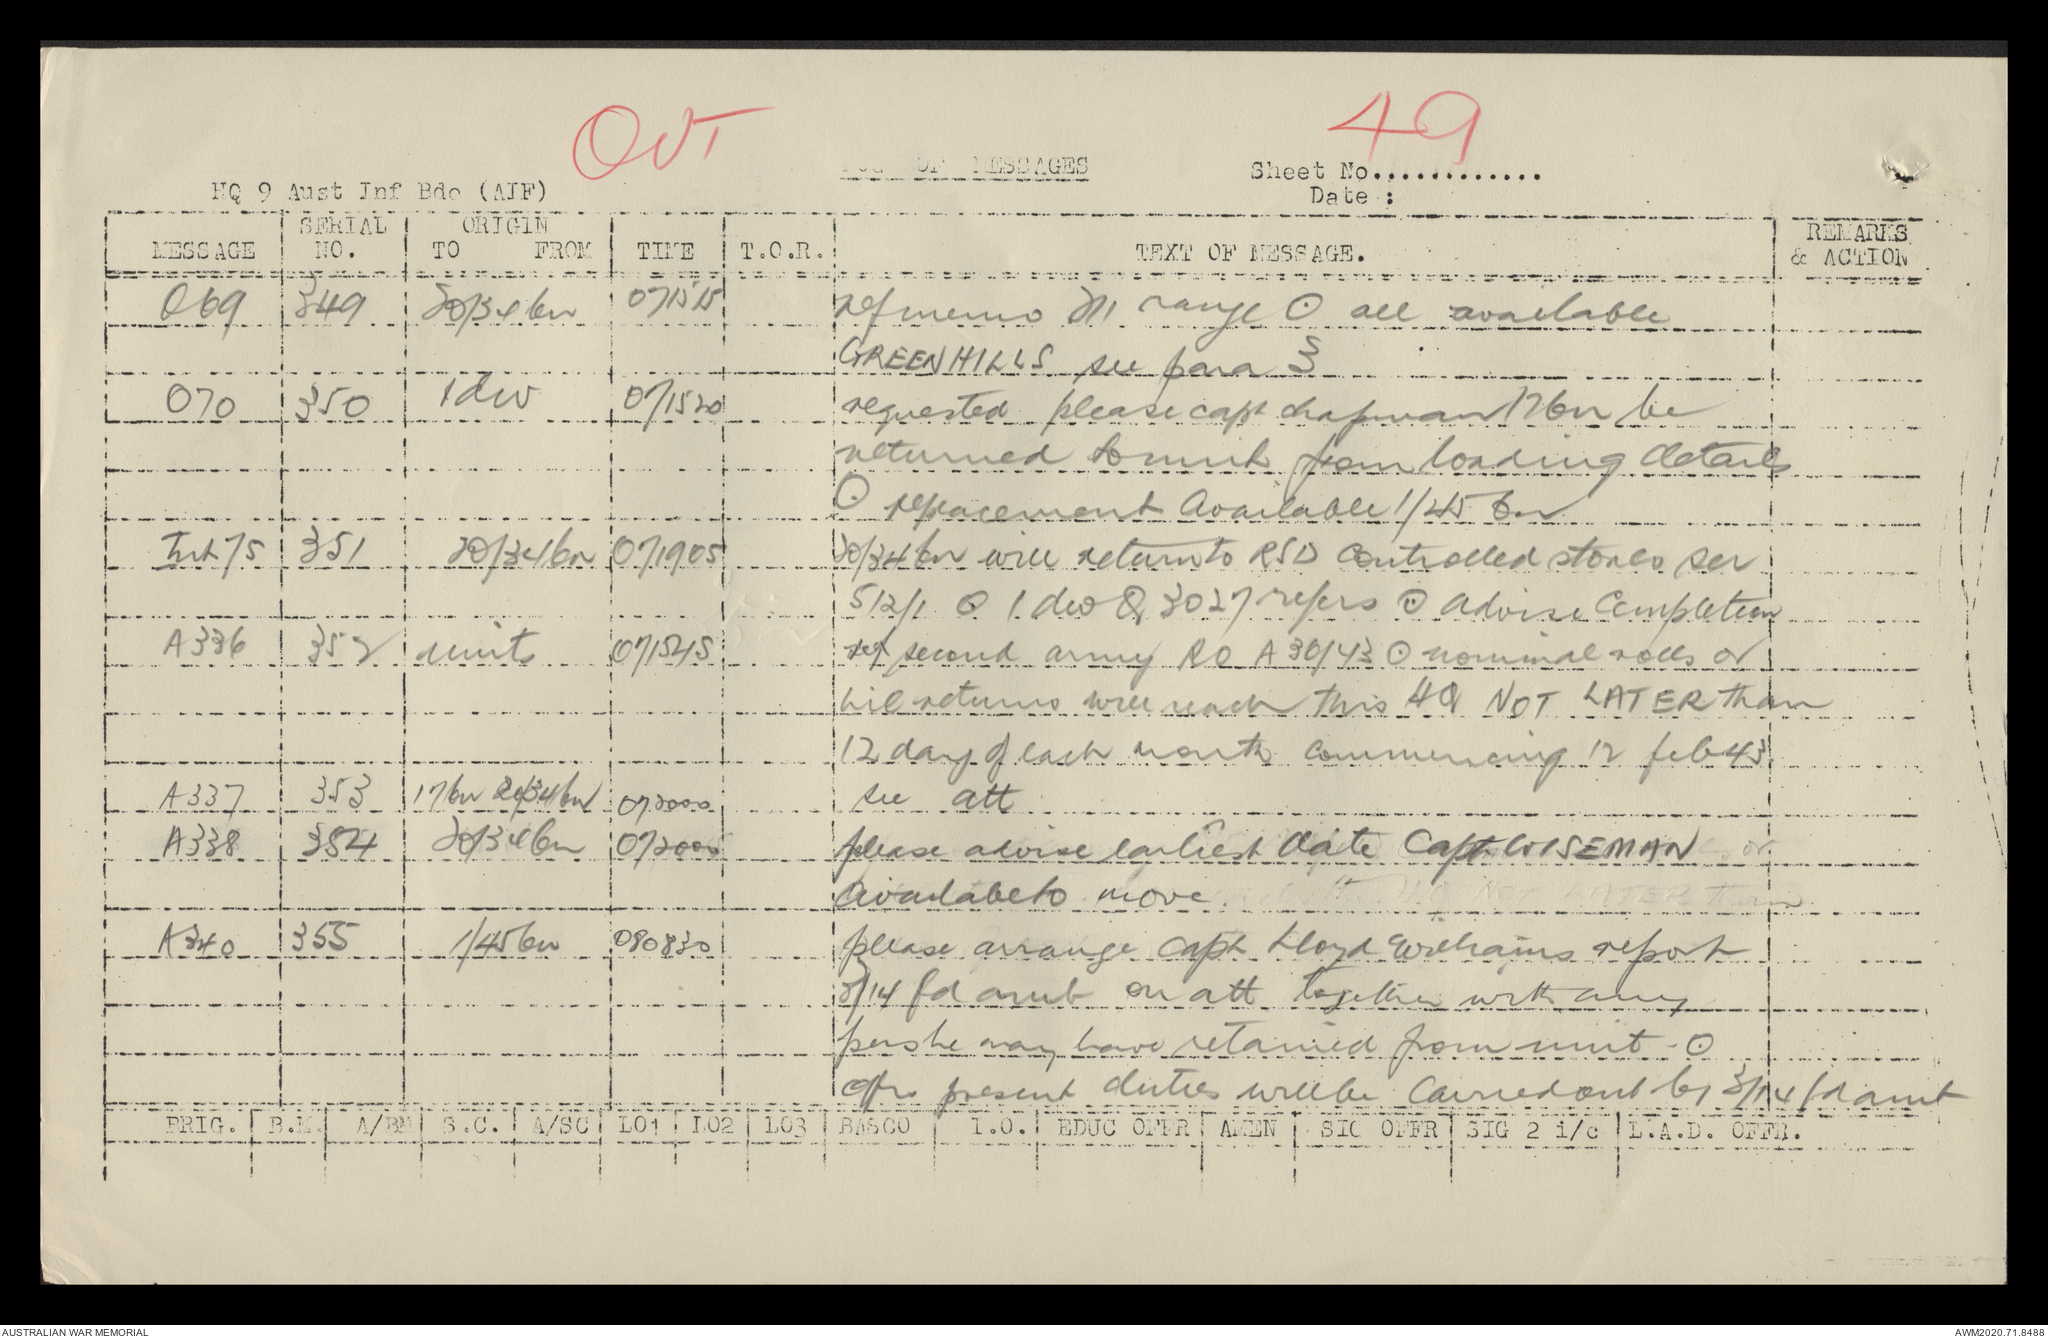 OUT
49
LOG OF MESSAGES
Sheet No.............
HQ 9 Aust Inf Bde (AIF)
Date :
MESSAGE SERIAL NO. ORIGIN TO FROM TIME T.O.R. TEXT OF MESSAGE. REMARKS & ACTION
O69 349 20/34 bn 071515 ref memo M range ⊙ all available
GREENHILLS see para 3
O70 350 1 div 071520 requested please capt chapman 17 bn be
returned to unit from loading details
⊙ replacement Available 1/45 bn
Int 75 351 20/34 bn 071905 20/34 bn will return to RSD controlled stores ser
512/1 ⊙ 1 div Q 3027 refers ⊙ advise completion
A336 352 units 071545 ref second army RO A30/43 ⊙ nominal rolls or
nil returns will reach this HQ NOT LATER than
12 day of each month commencing 12 feb 43
A337 353 17 bn 20/34 bn 072000 see att
A338 354 20/34 bn 072000 please advise earliest date Capt. WISEMAN
availabe to move
A340 355 1/45 bn 080830 please arrange capt Lloyd Williams report
3/14 fd amb on att together with any
pers he may have retained from unit - ⊙
offrs present duties will be carried out by 3/14 fd amb
BRIG. B.M. A/BM S.C. A/SC LO1 LO2 LO3 BASCO I.O. EDUC OFFR AMEN SIG OFFR SIG 2 i/c L.A.D. OFFR.
AUSTRALIAN WAR MEMORIAL
AWM2020.71.8488